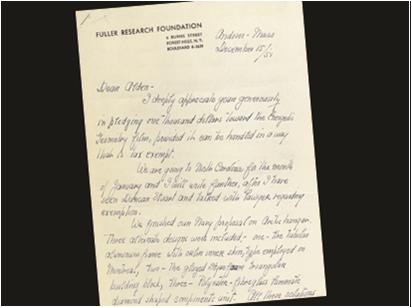 FULLER RESEARCH FOUNDATION
6 BURNS STREET
FOREST HILLS, N.Y.
BOULEVARD 8-
Andover - Mass
December 15/51
Dear Alden -
I deeply appreciate your generousity
in pledging one thousand dollars toward the Energetic
Geometry Film, provided it can be handled in a way
that is tax exempt.
We are going to North Carolina for the month
of January and I will write further, after I have
seen Duncan Stuart and talked with lawyer regarding
exemption.
We finished our Navy proposal on Arctic hangar.
Three alternate designs were included - one - the tubular
aluminum frame with outer inner skin, type employed on
Montreal, two - The glazed triangular
building block, three - Polyester - fibreglass laminate
diamond shaped components unit. All three solutions